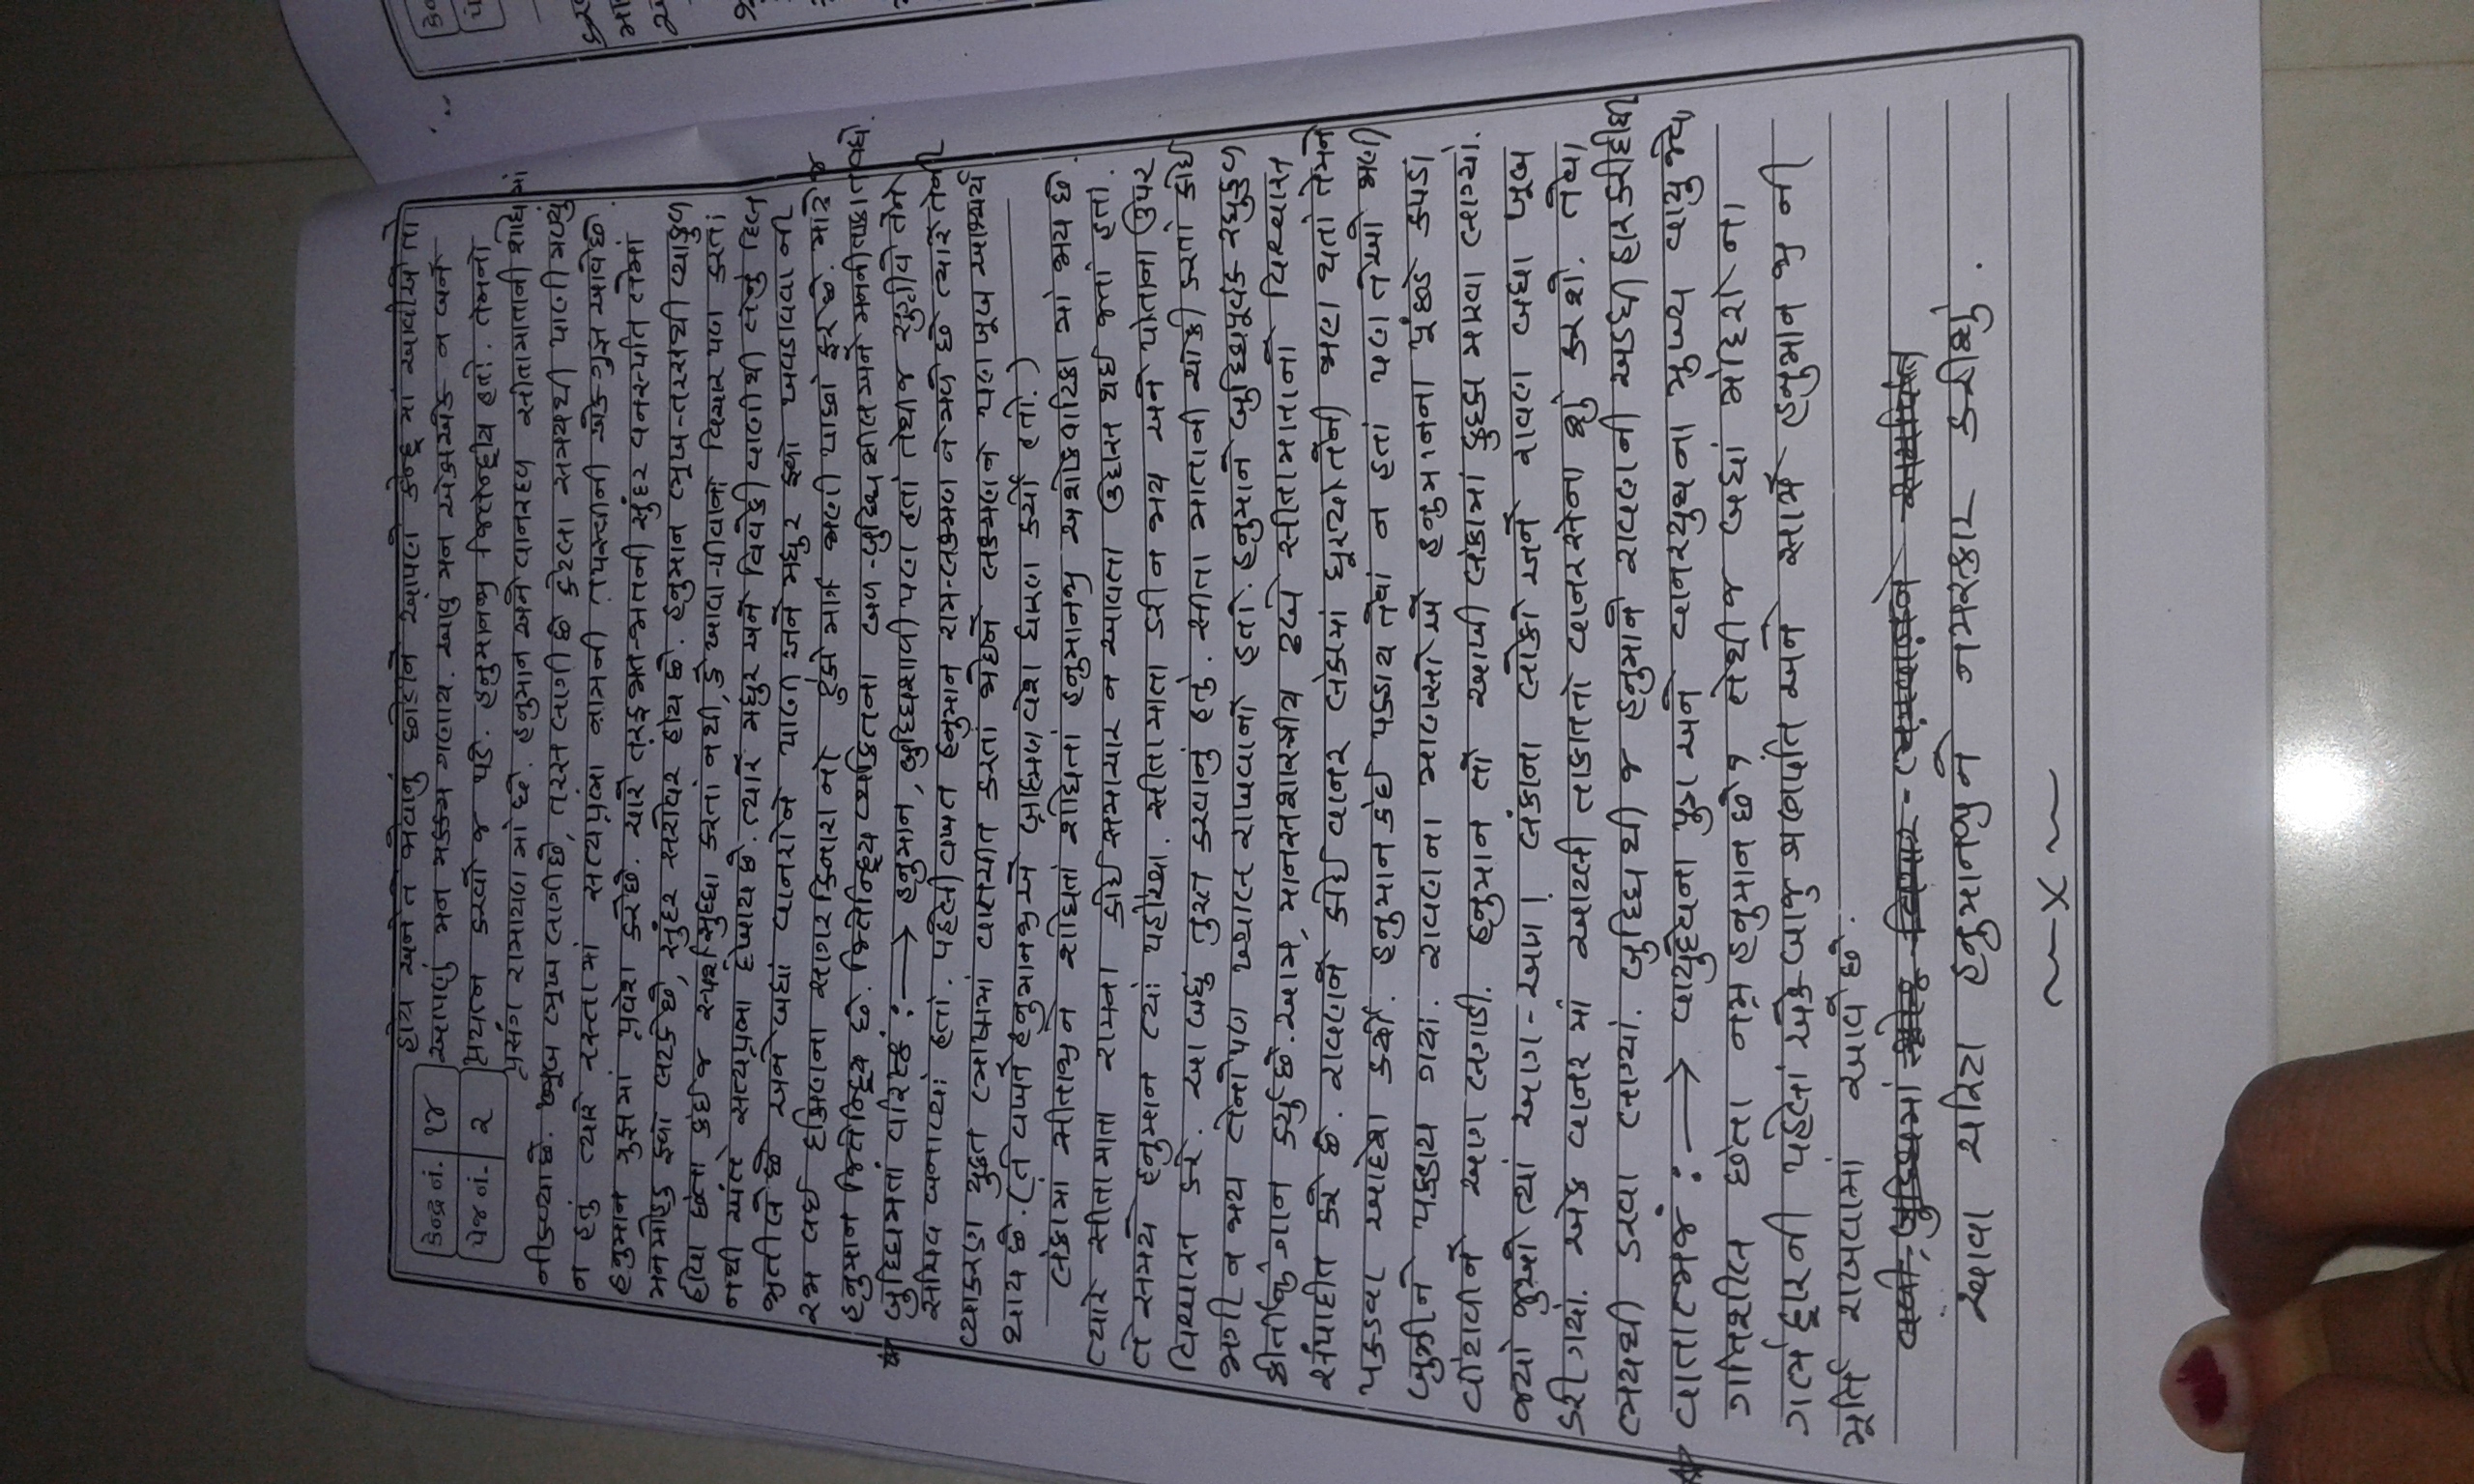 હોય અને તે જોવાનું છોડીને આપણે કેન્દ્ર માં આવીએ તો
કેન્દ્ર નં. ૧૪ આપણું મન મક્કમ ગણાય. આવું મન એકાએક ન બને
પેજ નં. ૨ પ્રયત્ન કરવો જ પડે. હનુમાનજી જિતેન્દ્રીય હતાં. તેમનો
પ્રસંગ રામાયણ માં છે. હનુમાન અને વાનરદળ સીતામાતાની શોધમાં
નીકળ્યા છે. ખૂબ ભૂખ લાગી છે, તરસ લાગી છે કેટલા સમયથી પાણી મળ્યું
ન હતું ત્યારે રસ્તામાં સત્યપ્રભા નામની તપસ્વીની એક ગુફા આવે છે.
હનુમાન ગુફામાં પ્રવેશ કરે છે. ચારે તરફ જાત-જાતની સુંદર વનસ્પતિ તેમાં
મનમોહક ફળો લટકે છે, સુંદર સરોવર હોય છે. હનુમાન ભૂખ-તરસથી વ્યાકુળ
હોવા છતા કંઈ જ સ્પર્શ સુધ્ધા કરતાં નથી, કે ખાવા-પીવાનો વિચાર પણ કરતાં
નથી અંતે સત્યપ્રભા દેખાય છે. ત્યારે મધુર અને વિવેકી વાણીથી તેનું દિલ
જીતી લે છે અને બધાં વાનરોને પાણી અને મધુર ફળો ખવડાવવા ની
રજા લઈ દક્ષિણના સાગરકિનારાનો ટુંકો માર્ગ જાણી પાછાં ફરે છે. માટે જ
હનુમાન જિતેન્દ્રિય છે. જિતેન્દ્રિય વ્યકિતના બળ-બુધ્ધિ શીલ અને મનની તાકાત વધે.
બુધ્ધિમતાં વરિષ્ઠં :→ હનુમાન, બુધ્ધિશાળી પણ હતાં તેથી જ સુગ્રીવે તેને
સચિવ બનાવ્યાં હતાં. પહેલી વખત હનુમાન રામ-લક્ષ્મણ ને મળે છે ત્યારે તેની
વ્યાકરણ યુક્ત ભાષામાં વાતચીત કરતાં જોઈને લક્ષ્મણને પણ ખૂબ આશ્ચર્ય
થાય છે. (તે વખતે હનુમાનજીએ બ્રાહ્મણ વેશ ધારણ કર્યો હતો.)
લંકામાં સીતાજીને શોધતાં શોધતાં હનુમાનજી અશોકવાટિકા માં જાય છે.
ત્યારે સીતામાતા રામના કોઈ સમાચાર ન આવતા ઉદાસ થઈ જતાં હતાં.
તે સમયે હનુમાન ત્યાં પહોંચ્યા. સીતામાતા ડરી ન જાય અને પોતાના ઉપર
વિશ્વાસ કરે. આ બધું તુરત કરવાનું હતું. સીતા માતાની ચોકી કરતાં કોઈ
જાગી ન જાય તેનો પણ ખ્યાલ રાખવાનો હતો. હનુમાને બુધ્ધિપૂર્વક રઘુકુળ
કીર્તીનું ગાન કર્યુ છે. આમ, માનસશાસ્ત્રીય ઢબે સીતામાતાનો વિશ્વાસ
સંપાદીત કરે છે. રાવણને કોઈ વાનર લંકામાં ઘૂસ્યો તેની જાણ થતાં તેમને
પકડવા આદેશ કર્યો. હનુમાન કંઈ પકડાય તેવાં ન હતાં પણ તેઓ જાણી
બુઝીને પકડાય ગયા. રાવણના માણસોએ હનુમાનના પૂંછડે કપડાં
વીંટાળીને આગ લગાડી. હનુમાન તો આખી લંકામાં કુદકા મારવા લાગ્યો.
જ્યાં જુઓ ત્યાં આગ-આગ! લંકાના લોકો અને રાવણ બધા ખૂબ
ડરી ગયાં. એક વાનર માં આટલી તાકાત તો વાનરસેના શું કરશે. તેવા
ભયથી ડરવા લાગ્યાં. બુધ્ધિથી જ હનુમાને રાવણની અડધી હાર કરી દીધી.
વાતાત્મજં :→ વાયુદેવના પુત્ર અને વાનરયુથના મુખ્ય વાયુ જેવા
ગતિશીલ છતા નમ્ર હનુમાન છે. તેથી જ બધાં મંદિરોના
ગર્ભદ્વારની પહેલાં એક બાજુ ગણપતિ અને સામે હનુમાનજીની
મૂર્તિ રાખવામાં આવે છે.
આવા ચરિત્ર હનુમાનજીને નમસ્કાર કરીશું.
~x~